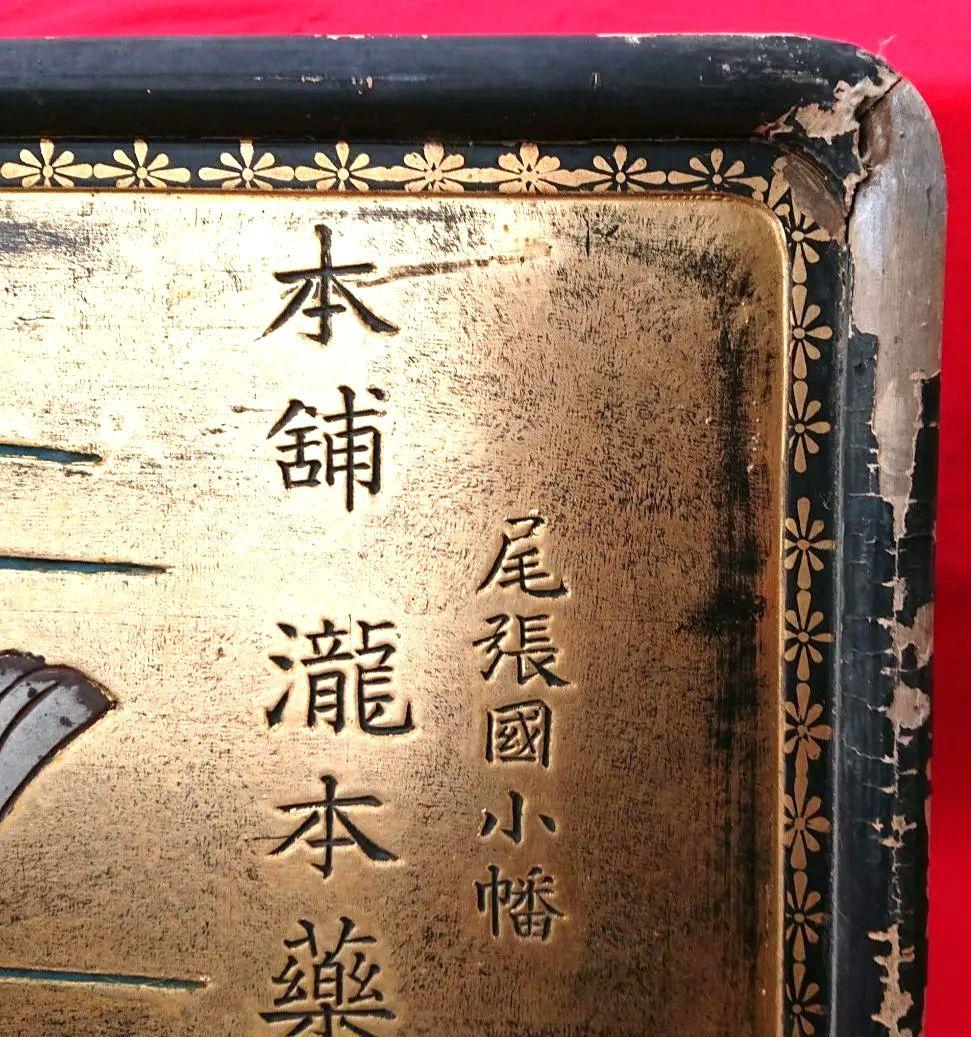 尾張國小幡
本舖 瀧本藥